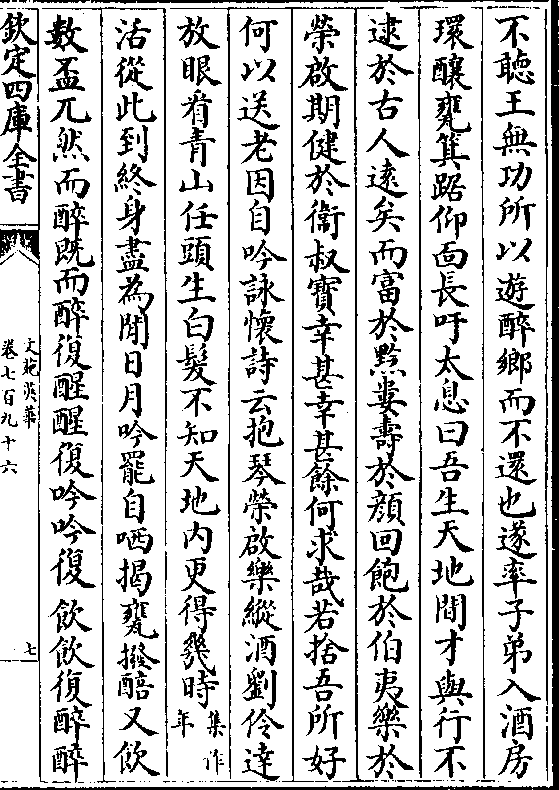 不聽王無功所以遊醉鄉而不還也遂率子弟入酒房
環釀甕箕踞仰面長吁太息曰吾生天地間才與行不
逮於古人遠矣而富於黔婁壽於顔回飽於伯夷樂於
榮啟期健於衞叔寶幸甚幸甚餘何求哉若捨吾所好
何以送老因自吟詠懷詩云抱琴榮啟樂縱酒劉伶達
放眼看青山任頭生白髮不知天地内更得幾時集作年
活從此到終身盡為閒日月吟罷自哂揭甕撥醅又飲
數盃兀然而醉既而醉復醒醒復吟吟復飲飲復醉醉
欽定四庫全書
文苑英華
卷七百九十六
七